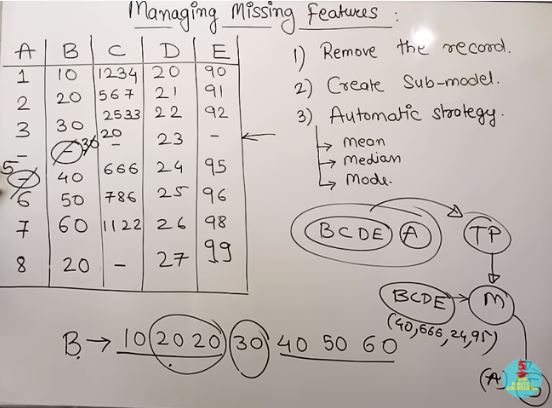 Managing Missing Features :
A B C D E
1 10 1234 20 90
2 20 567 21 91
3 30 2533 22 92
- - 30 20 - 23 -
5 - 40 666 24 95
6 50 786 25 96
7 60 1122 26 98
8 20 - 27 99
1) Remove the record.
2) Create Sub-model.
3) Automatic strategy.
→ mean
→ median
→ Mode.
BCDE A TP
BCDE → M
(40,666,24,95)
(A)
B → 10 20 20 30 40 50 60